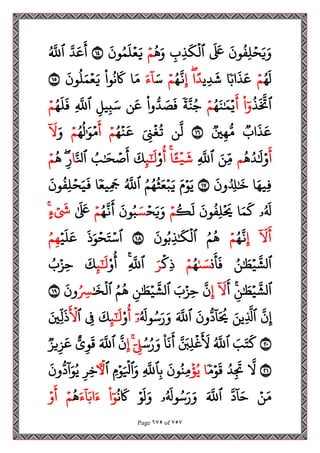 وَيَحْلِفُونَ عَلَى ٱلْكَذِبِ وَهُمْ يَعْلَمُونَ ١٤ أَعَدَّ ٱللَّهُ
لَهُمْ عَذَابًا شَدِيدًا ۖ إِنَّهُمْ سَآءَ مَا كَانُوا۟ يَعْمَلُونَ ١٥
ٱتَّخَذُوٓا۟ أَيْمَٰنَهُمْ جُنَّةً فَصَدُّوا۟ عَن سَبِيلِ ٱللَّهِ فَلَهُمْ
عَذَابٌ مُّهِينٌ ١٦ لَّن تُغْنِىَ عَنْهُمْ أَمْوَٰلُهُمْ وَلَآ
أَوْلَٰدُهُم مِّنَ ٱللَّهِ شَيْـًٔا ۚ أُو۟لَٰٓئِكَ أَصْحَٰبُ ٱلنَّارِ ۖ هُمْ
فِيهَا خَٰلِدُونَ ١٧ يَوْمَ يَبْعَثُهُمُ ٱللَّهُ جَمِيعًا فَيَحْلِفُونَ
لَهُۥ كَمَا يَحْلِفُونَ لَكُمْ ۖ وَيَحْسَبُونَ أَنَّهُمْ عَلَىٰ شَىْءٍ ۚ
أَلَآ إِنَّهُمْ هُمُ ٱلْكَٰذِبُونَ ١٨ ٱسْتَحْوَذَ عَلَيْهِمُ
ٱلشَّيْطَٰنُ فَأَنسَىٰهُمْ ذِكْرَ ٱللَّهِ ۚ أُو۟لَٰٓئِكَ حِزْبُ
ٱلشَّيْطَٰنِ ۚ أَلَآ إِنَّ حِزْبَ ٱلشَّيْطَٰنِ هُمُ ٱلْخَٰسِرُونَ ١٩
إِنَّ ٱلَّذِينَ يُحَآدُّونَ ٱللَّهَ وَرَسُولَهُۥٓ أُو۟لَٰٓئِكَ فِى ٱلْأَذَلِّينَ
٢٠ كَتَبَ ٱللَّهُ لَأَغْلِبَنَّ أَنَا۠ وَرُسُلِىٓ ۚ إِنَّ ٱللَّهَ قَوِىٌّ عَزِيزٌ
٢١ لَّا تَجِدُ قَوْمًا يُؤْمِنُونَ بِٱللَّهِ وَٱلْيَوْمِ ٱلْءَاخِرِ يُوَآدُّونَ
مَنْ حَآدَّ ٱللَّهَ وَرَسُولَهُۥ وَلَوْ كَانُوٓا۟ ءَابَآءَهُمْ أَوْ
Page ٦٧٥ of ٧٥٧